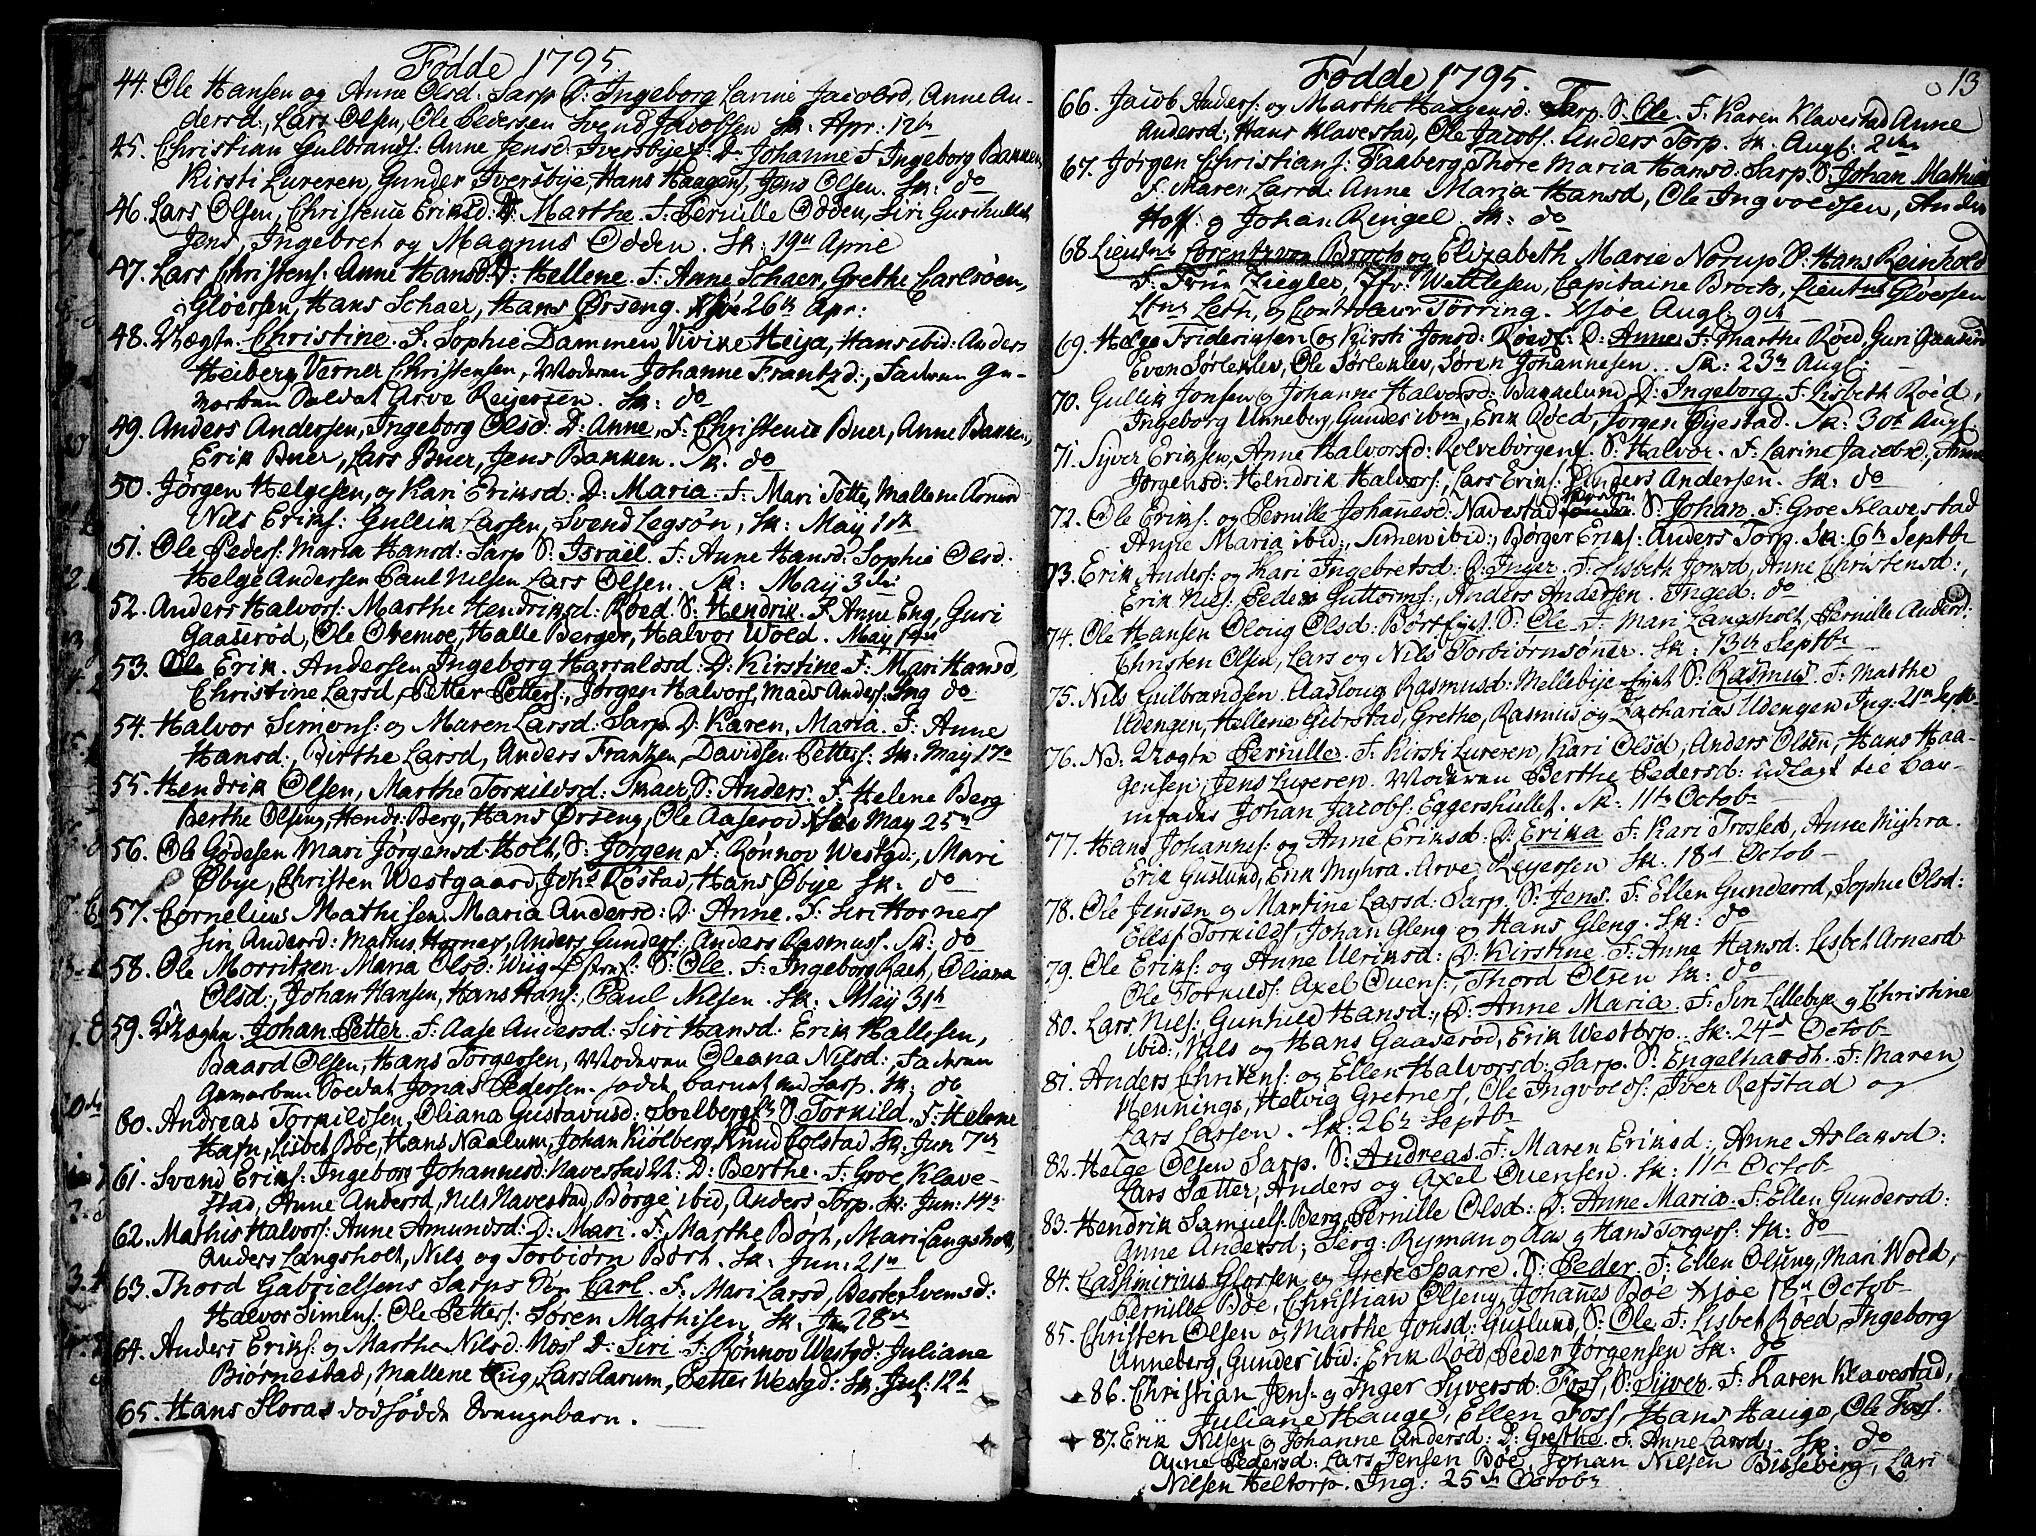 Fødde 1795.
44. Ole Hansen og Anne Olsd: Sarp D: Ingeborg Lavine Jacobsd, Anne An-
dersd:, Lars Olsen, Ole Pedersen Svend Jacobsen Sk: Apr: 12te
45. Christian Gulbrands: Anne Jensd: Iversbye D: Johanne F: Ingeborg Bakken,
Kirsti Lureren, Gunder Iversbye, Hans Haagens, Jens Olsen. Sk: do
46. Lars Olsen, Christence Eriksd: D: Marthe. F: Pernille Odden, Siri
Jens, Ingebret og Magnus Odden. Sk: 19de April
47. Lars Christens: Anne Hansd: D: Hellene. F: Anne Schaer, Grethe Carlsøen,
Gloersen, Hans Schaer, Hans Ørseng. 26de Apr:
48. Uægte Christine. F: Sophie Dammen, Vivike Heija, Hans ibid: Anders
Heiberg, Verner Christensen, Moderen Johanne Frantzd:, Faderen Ge-
Soldat Arve Reijersen. Sk: do
49. Anders Andersen, Ingeborg Olsd: D: Anne, F: Christence Buer, Anne Bakken,
Erik Buer, Lars Buer, Jens Bakken. Sk. do
50. Jørgen Helgesen, og Kari Eriksd: D: Maria. F: Mari Tette, Mallene
Nils Eriks: Gullik Larsen, Svend Legsøn, Sk: May
51. Ole Peders: Maria Hansd: Sarp S: Israel. F: Anne Hansd: Sophie Olsd:
Helge Andersen Paul Nilsen Lars Olsen. Sk: May 3die
52. Anders Halvors: Marthe Hendriksd: Roed S: Hendrik. F: Anne Eng, Guri
Gaaserød, Ole Opemoe, Halle Berger, Halvor Woed. May
53. Erik Andersen Ingeborg Harraldsd: D: Kirstine F: Mari Hansd,
Christine Larsd, Petter Petters:, Jørgen Halvors, Mads Anders: Ing do
54. Halvor Simons: og Maren Larsd: Sarp D: Karen, Maria. F: Anne
Hansd: Birthe Larsd, Anders Frantzen, Davidsen Petters: Sk: May 17de
55. Hendrik Olsen, Marthe Torkildsd: Skaer, S: Anders. F: Helene Berg
Berthe Olseng, Hendr: Berg, Hans Ørseng, Ole Aaserød May 25de
56. Ole Gødesen Mari Jørgensd: Holt, S: Jørgen, F: Rønnov Westgd:, Mari
Øbye, Christen Westgaard, Johs Røstad, Hans Øbye Sk: do
57. Cornelius Mathisen Maria Andersd: D: Anne. F: Siri Hornes
Siri Andersd: Mathis Hornes, Anders Gunders:, Anders Rasmuss. Sk: do
58. Ole Morritzen Maria Olsd: Wiig S: Ole. F: Ingeborg Raet, Oliana
Olsd:, Johan Hansen, Hans Hans:, Paul Nilsen. Sk: May 31te
59. Uægte Johan Petter. F: Aase Andersd: Siri Hansd: Erik Hallesen,
Baard Olsen, Hans Torgersen, Moderen Oleana Nilsd:, Faderen
Soldat Jonas Pedersen. født barnet ved Sarp. Sk: do
60. Andreas Torkildsen, Oliana Gustavusd: Soelberg S: Torkild. F: Helene
Hafn, Lisbet Boe, Hans Naalum, Johan Kiølberg, Knud Colstad Sk: Jun 7de
61. Svend Eriks: Ingebor Johannesd: Navestad D: Berthe. F: Groe Klave-
stad, Anne Andersd, Nils Navestad, Børge ibid, Anders Torp. Sk: Jun: 14de
62. Mathis Halvors: Anne Amundsd: D: Mari. F: Marthe Børt, Mari Langsholt,
Anders Langsholt, Nils og Torbiørn Børt. Sk: Jun: 21de
63. Thord Gabrielsens Sarps Carl. F: Mari Larsd, Berte Svensd:
Halvor Simens: Ole Petters: Søren Mathisen Sk: Jun 28de
64. Anders Eriks: og Marthe Nilsd: Noss D: Siri F: Rønnov Westgd: Juliane
Biørnestad, Mallene Eng, Lars Aarum, Petter Westgd: Sk: Jul: 12te
65. Hans Floras dødfødde Drengebarn.
13
Fødde 1795.
66. Jacob Anders: og Marthe Haagensd: Sarp S: Ole. F: Karen Klavestad Anne
Andersd:, Hans Klavestad, Ole Jacobs: Anders Torp. Sk. Augs: 2den
67. Jørgen Christians: Faaberg Thore Maria Hansd: Sarp. S: Johan Mathias
F: Maren Larsd: Anne Maria Hansd, Ole Ingvoldsen, Anders
Hoff: og Johan Ringel. Sk: do
68. Lieutn: Lorentz von Broch og Elizabeth Marie Norup S: Hans Reinhold
F: Frue Ziegler, Jfr: Wettlesen, Capitaine Broch, Lieutn Gløersen
Ltn: Leth, og Controleur Tørring. Augs: 9de
69. Helge Fridriksen og Kirsti Jonsd: Røed: D: Anne F: Marthe Røed, Guri
Even Sørlekler, Ole Sørlekler, Søren Johannesen. Sk: 23de Augs:
70. Gullik Jonsen og Johanne Halvorsd: Bakkelund D: Ingeborg. F: Lisbeth Røed,
Ingeborg Anneberg, Gunder ibm, Erik Røed, Jørgen Øyestad. Sk: 30te Augs:
71. Syver Eriksen, Anne Halvorsd: Kolvebørgen S: Halvor. F: Larine Jacobsd:, Anne
Jørgensd: Hendrik Halvors:, Lars Eriks: Anders Andersen. Sk: do
72. Ole Eriks: og Pernille Johanesd: Navestad S: Johan. F: Groe Klavestad
Anne Maria ibid:, Simen ibid:, Børger Eriks: Anders Torp. Sk: 6te Septbr
73. Erik Anders: og Kari Ingebretsd: D: Inger. F: Lisbeth Jonsd, Anne Christensd:,
Erik Nils: Peder Guttorms:, Anders Andersen. Inged: do
74. Ole Hansen Oloug Olsd: Børt S: Ole F: Mari Langsholt, Pernille Andersd:
Christen Olsen, Lars og Nils Torbiørnsøner. Sk: 13de Septbr
75. Nils Gulbrandsen. Aasloug Rasmusd: Mellebye S: Rasmus. F: Marthe
Udengen, Hellene Giørstad, Grethe, Rasmus og Zacharias Udengen Ing: 21de Septbr
76. NB: Uægte Pernille. F: Kirsti Lureren, Kari Olsd, Anders Olsen, Hans Haa-
gensen, Jens Lureren. Moderen Berthe Pedersd: udlagt til bar-
nefader Johan Jacobs: Eggershullet. Sk: 11te Octob
77. Hans Johannes: og Anne Eriksd: D: Erika F: Kari Trosted, Anne Myhra.
Erik Guslund, Erik Myhra. Arve Reyersen Sk: 18de Octob
78. Ole Jensen og Martine Larsd: Sarp. S: Jens. F: Ellen Gundersd, Sophie Olsd:
Ellef Torkilds Johan Gleng og Hans Gleng. Sk: do
79. Ole Eriks: og Anne Ulriksd: D: Kirstine. F: Anne Hansd: Lisbet Arnesd
Ole Torkilds: Axel Ouens:, Thord Olsen Sk: do
80. Lars Nils: Gunhild Hansd:, D: Anne Maria. F: Siri Lillebye og Christine
ibid:, Nils og Hans Gaaserød, Erik Westorp. Sk: 24de Octob
81. Anders Christens: og Ellen Halvorsd: Sarp. S: Engelhardt. F: Maren
Hennings, Helvig Gretners, Ole Ingvolds: Iver Refstad og
Lars Larsen. Sk: 26de Septbr
82. Helge Olsen Sarp. S: Andreas F: Maren Eriksd:, Anne Aslaksd:
Lars Sætter, Anders og Axel Ouensen. Sk: 11te Octob
83. Hendrik Samuels: Berg, Pernille Olsd: D: Anne Maria. F: Ellen Gundersd:
Anne Andersd; Serg: Ryman og Aas og Hans Torgers: Sk: do
84. Cashimirius Glørsen og Grete Sparre. S: Peder F: Ellen Olseng, Mari Wold,
Pernille Bøe, Christian Olseng, Johanes Bøe 18de Octob
85. Christen Olsen og Marthe Jonsd: Guslund, S: Ole F: Lisbet Røed, Ingeborg
Anneberg, Gunder ibid: Erik Røed Peder Jørgensen Sk: do
86. Christian Jens: og Inger Syversd: Foss, S: Syver. F: Karen Klavestad,
Juliane Hauge, Ellen Foss, Hans Hauge, Ole Foss.
87. Erik Nilsen og Johanne Andersd: D: Grethe. F: Anne Larsd: Sk: do
Anne Pedersd: Lars Jensen Bøe, Johan Nilsen Bisseberg, Lars
Nilsen Heltorp. Ing: 25de Octobr